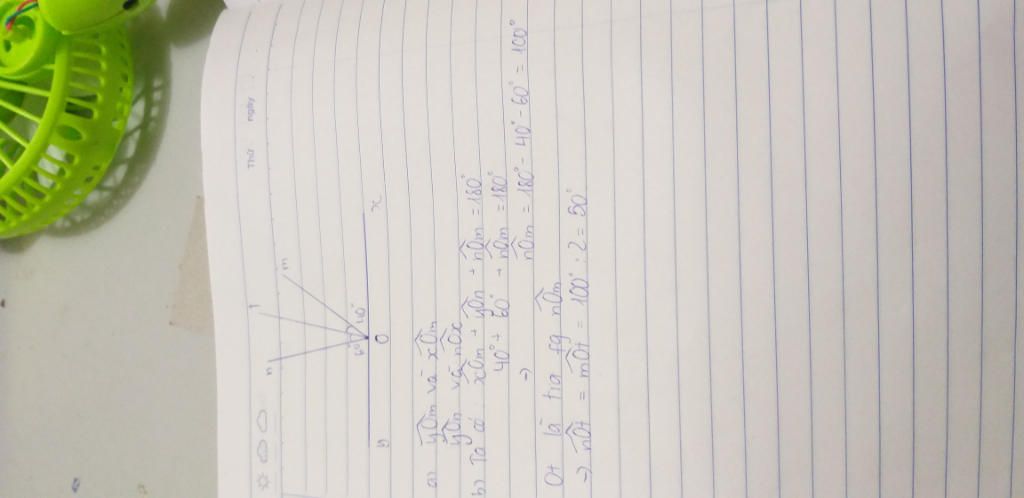 Thứ ngày
n t m
60° 40°
y O x
a) $\widehat{yOm}$ và $\widehat{xOm}$
$\widehat{yOn}$ và $\widehat{nOx}$
b) Ta có: $\widehat{xOm}$ + $\widehat{yOn}$ + $\widehat{nOm}$ = 180°
40° + 60° + $\widehat{nOm}$ = 180°
=> $\widehat{nOm}$ = 180° - 40° - 60° = 100°
Ot là tia fg $\widehat{nOm}$
=> $\widehat{nOt}$ = $\widehat{mOt}$ = 100° : 2 = 50°